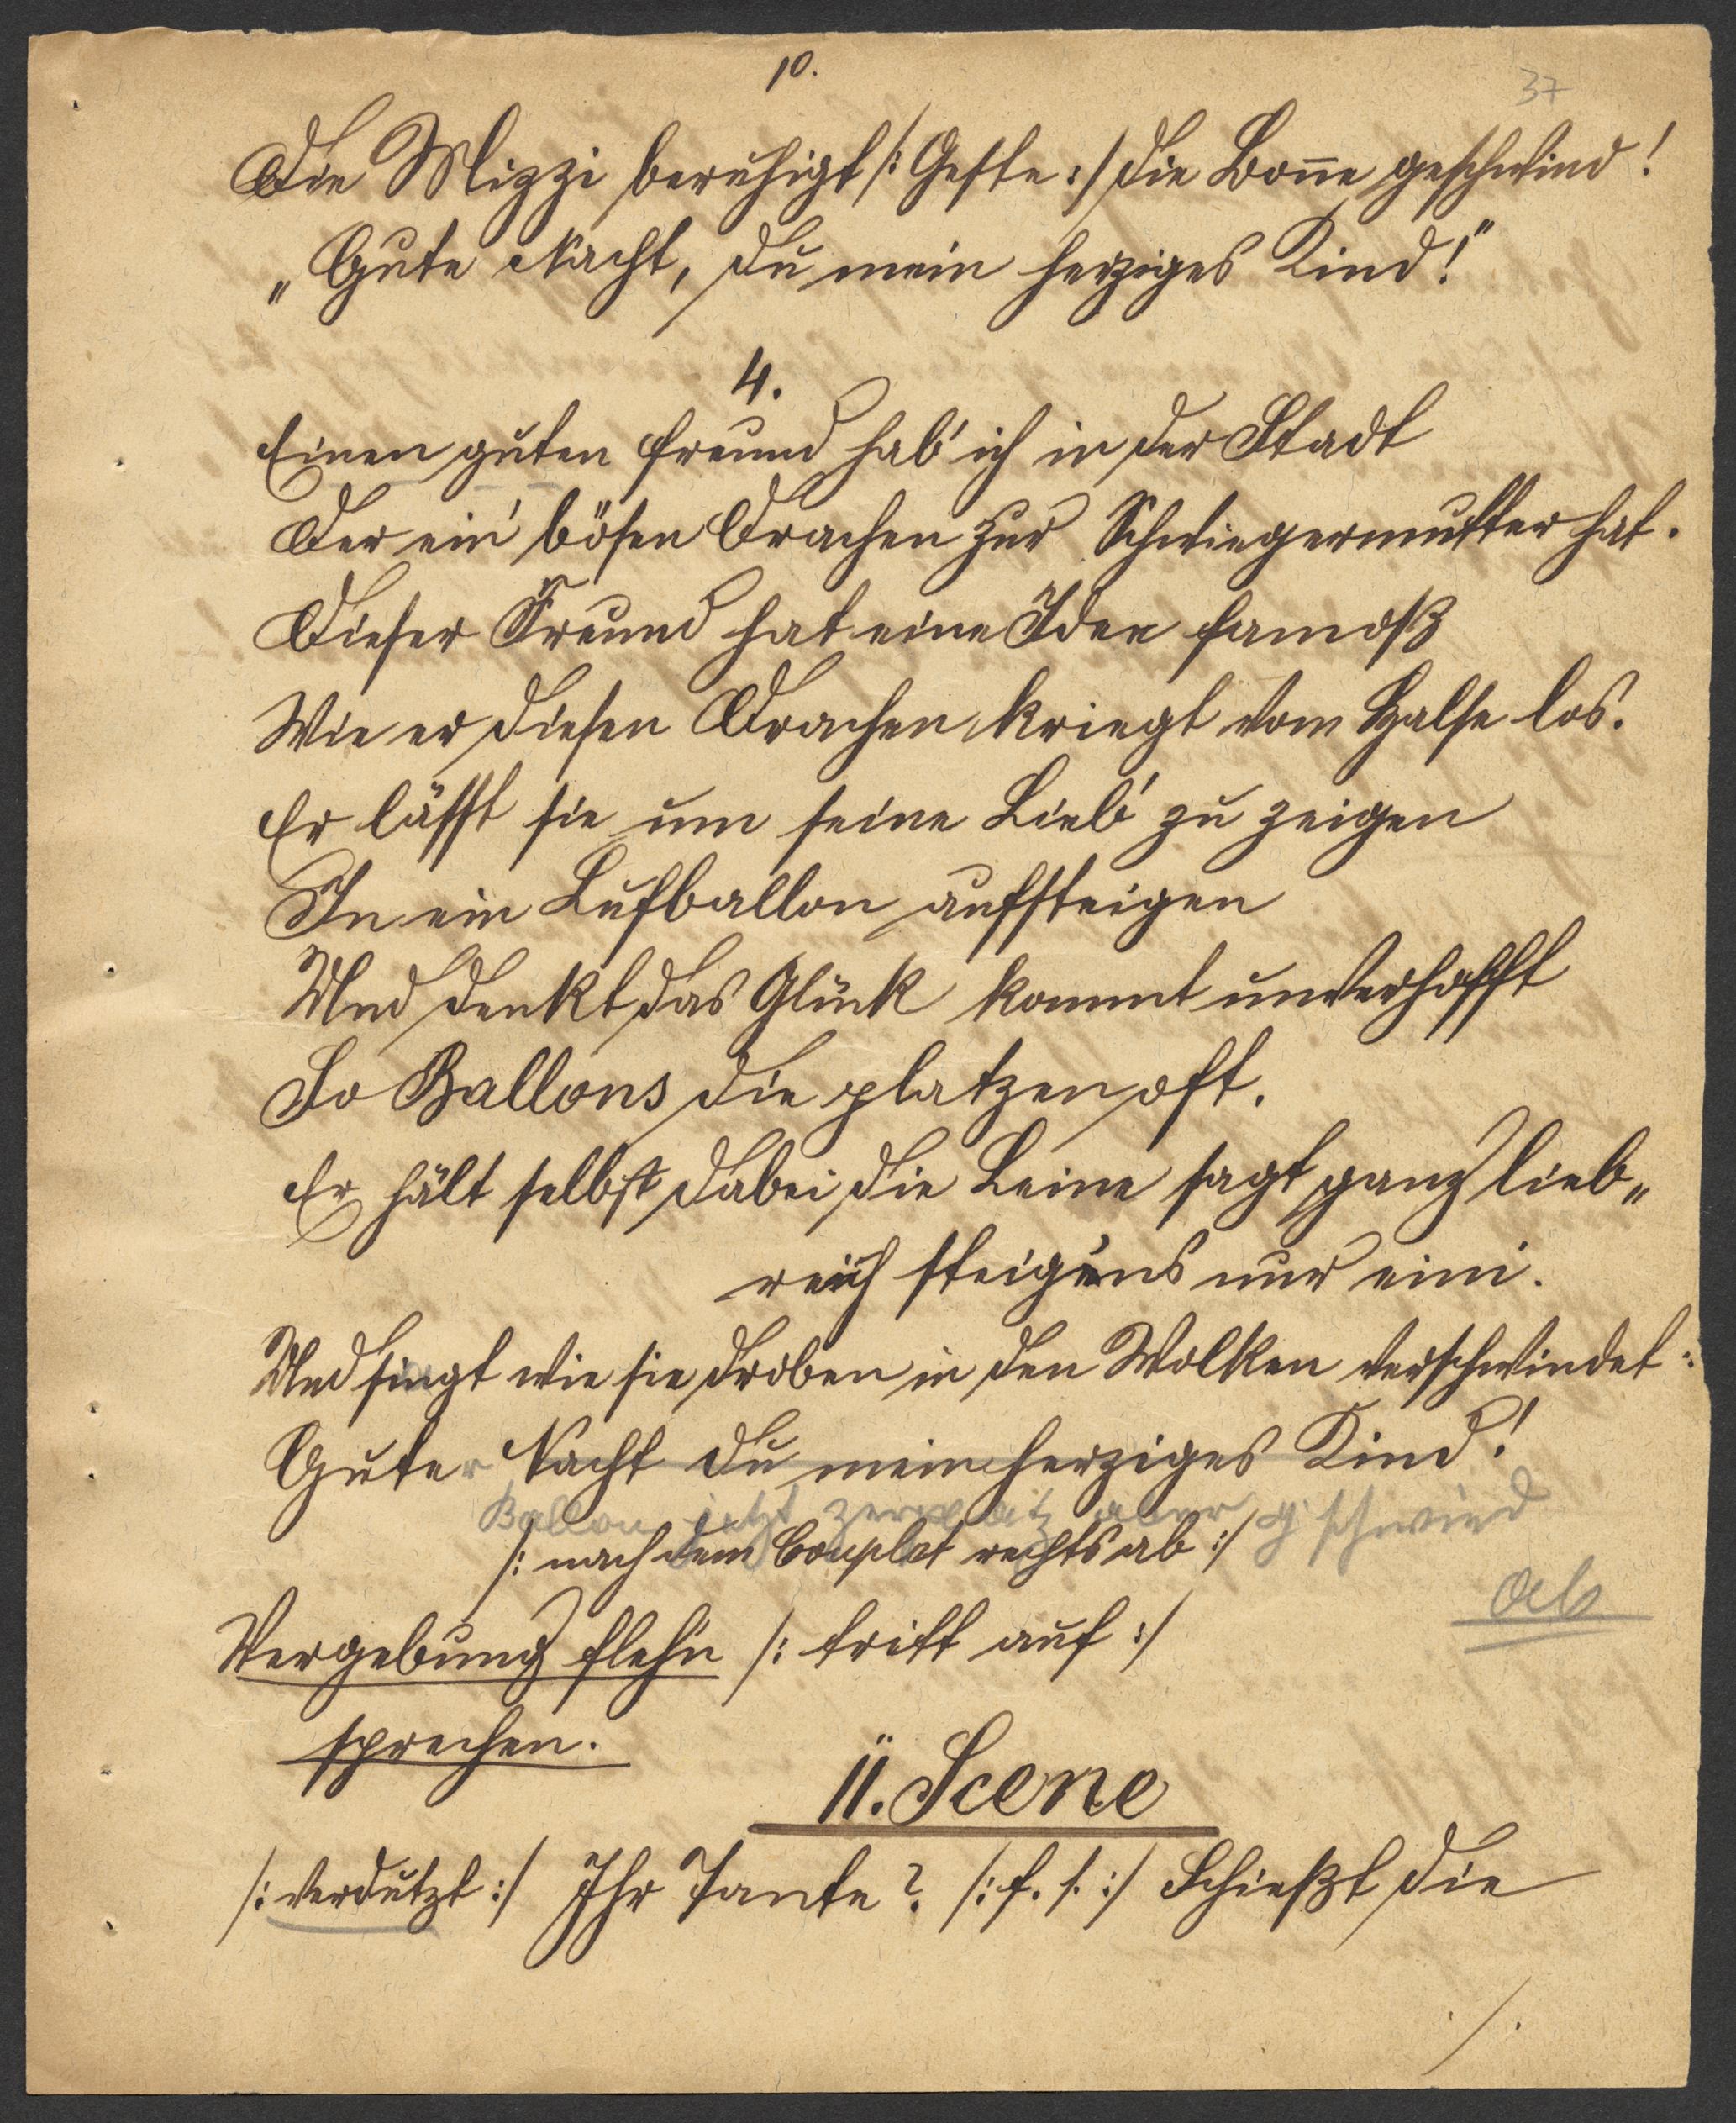 10.
37
Die Mizzi beruhigt /: Geste :/ die Bon̄e geschwind!
„Gute Nacht, du mein herziges Kind!"
4.
Einen guten Freund hab' ich in der Stadt
Der ein' bösen Drachen zur Schwiegermutter hat.
Dieser Freund hat eine Idee famoß
Wie er diesen Drachen kriegt vom Halse los.
Er lässt sie um seine Lieb' zu zeigen
In ein Lufballon aufsteigen
Und denkt das Glück kommt unverhofft
So Ballons die platzen oft.
Er hält selbst dabei die Leine sagt ganz lieb„
reich steig'ns nur eini.
Und singt wie sie droben in den Wolken verschwindet:
Guter Nacht du mein herziges Kind!
Ballon jetzt zerplatz aber g'schwind
/: nach dem Couplet rechts ab :/
ab
Vergebung flehn /: tritt auf :/
sprechen.
11. Scene
/: verdutzt :/ Ihr Tante? /: f. s. :/ Schießt die
/.